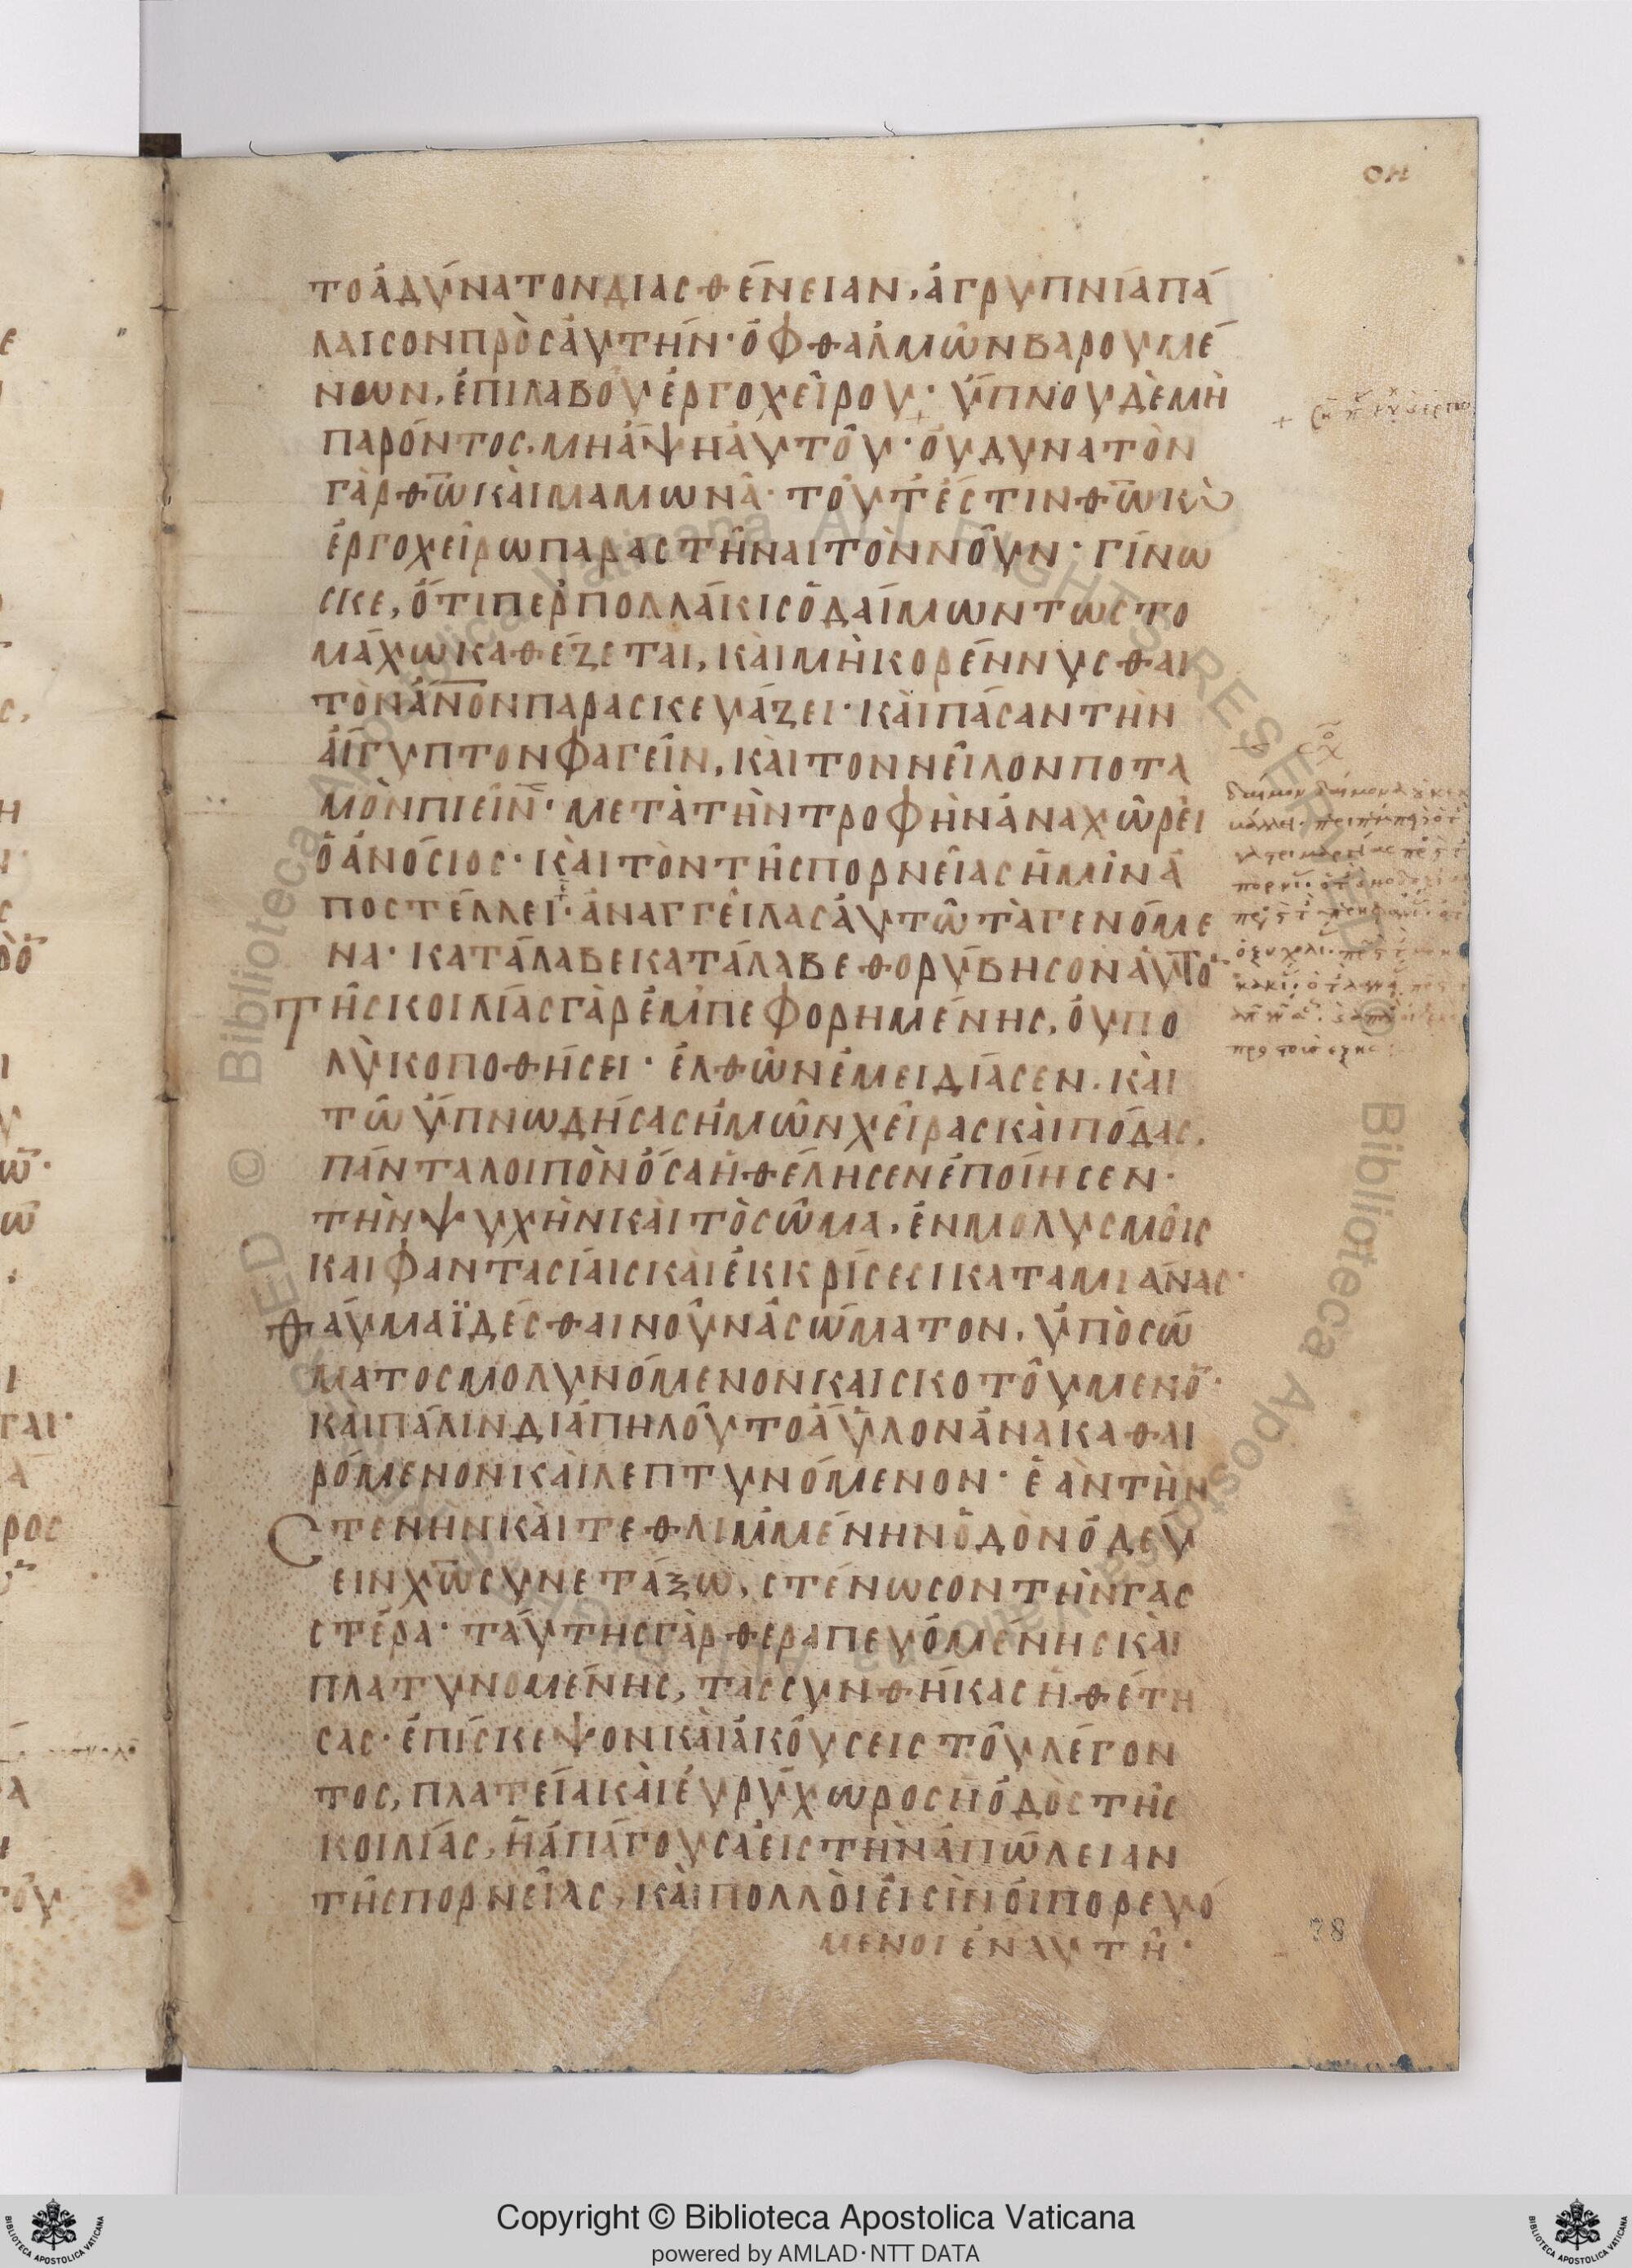 ΟΗ
ΤΟἈΔΎΝΑΤΟΝΔΙΑΣΘΈΝΕΙΑΝ, ἈΓΡΥΠΝΊΑΠΆ
ΛΑΙΣΟΝΠΡῸΣἈΥΤΉΝ· ὈΦΘΑΛΜῶΝΒΑΡΟΥΜΈ
ΝΩΝ, ἘΠΙΛΑΒΟΎἘΡΓΟΧΕΊΡΟΥ· ὝΠΝΟΥΔῈΜῊ
ΠΑΡΌΝΤΟΣ, ΜΗἍΨΗἈΥΤΟῦ· ὈΥΔΥΝΑΤῸΝ
ΓᾺΡΘΩ̅ΚᾺΙΜΑΜΩΝᾶ· ΤΟῦΤἘΣΤΙΝΘΩ̅ΚῺ
ἘΡΓΟΧΕΊΡΩΠΑΡΑΣΤῆΝΑΙΤῸΝΝΟῦΝ· ΓΊΝΩ
ΣΚΕ, ὍΤΙΠΕΡΠΟΛΛΆΚΙΣὉΔΑΊΜΩΝΤΩΣΤΟ
ΜΆΧΩΚΑΘΈΖΕΤΑΙ, ΚᾺΙΜῊΚΟΡΈΝΝΥΣΘΑΙ
ΤῸΝἈΝ̅Ο̅ΝΠΑΡΑΣΚΕΥΆΖΕΙ· ΚᾺΙΠΆΣΑΝΤῊΝ
ἈΊΓΥΠΤΟΝΦΑΓΕῖΝ, ΚᾺΙΤΟΝΝΕῖΛΟΝΠΟΤΑ
ΜῸΝΠΙΕῖΝ· ΜΕΤᾺΤῊΝΤΡΟΦῊΝἈΝΑΧῶΡΕῖ
ὉἈΝΌΣΙΟΣ· ΚᾺΙΤῸΝΤῆΣΠΟΡΝΕΊΑΣἩΜῖΝἈ
ΠΟΣΤΈΛΛΕΙ· ἈΝΑΓΓΕΊΛΑΣἈΥΤῶΤᾺΓΕΝΌΜΕ
ΝΑ· ΚΑΤΆΛΑΒΕΚΑΤΆΛΑΒΕΘΟΡΎΒΗΣΟΝἈΥΤΟ
ΤῆΣΚΟΙΛΊΑΣΓᾺΡἘΜΠΕΦΟΡΗΜΈΝΗΣ, ὈΥΠΟ
ΛῪΚΟΠΟΘΉΣΕΙ· ἘΛΘῺΝἘΜΕΙΔΊΑΣΕΝ. ΚᾺΙ
Τῶ ὝΠΝΩΔΉΣΑΣἩΜῶΝΧΕῖΡΑΣΚᾺΙΠΌΔΑΣ,
ΠΆΝΤΑΛΟΙΠῸΝὍΣΑἨΘΈΛΗΣΕΝἘΠΟΊΗΣΕΝ·
ΤῊΝΨΥΧῊΝΚᾺΙΤῸΣῶΜΑ, ἘΝΜΟΛΥΣΜΟῖΣ
ΚΑΙΦΑΝΤΑΣΊΑΙΣΚᾺΙἘΚΚΡΊΣΕΣΙΚΑΤΑΜΙΆΝΑΣ·
ΘΑῦΜΑΪΔΈΣΘΑΙΝΟῦΝἈΣΏΜΑΤΟΝ, ὙΠῸΣΏ
ΜΑΤΟΣΜΟΛΥΝΌΜΕΝΟΝΚΑΙΣΚΟΤΟΎΜΕΝΟ̅·
ΚᾺΙΠΆΛΙΝΔΙΆΠΗΛΟῦΤΟἈΫΛΟΝἈΝΑΚΑΘΑΙ
ΡΌΜΕΝΟΝΚᾺΙΛΕΠΤΥΝΌΜΕΝΟΝ· ἘᾺΝΤῊΝ
ΣΤΕΝῊΝΚᾺΙΤΕΘΛΙΜΜΈΝΗΝὉΔῸΝὉΔΕΎ
ΕΙΝΧΩ̅ΣΥΝΕΤΆΞΩ, ΣΤΈΝΩΣΟΝΤῊΝΓΑΣ
ΣΤΈΡΑ· ΤΑΎΤΗΣΓᾺΡΘΕΡΑΠΕΥΌΜΈΝΗΣΚᾺΙ
ΠΛΑΤΥΝΟΜΈΝΗΣ, ΤΑΣΣΥΝΘΉΚΑΣἨΘΈΤΗ
ΣΑΣ· ἘΠΊΣΚΕΨΟΝΚᾺΙἈΚΟΎΣΕΙΣΤΟῦΛΈΓΟΝ
ΤΟΣ, ΠΛΑΤΕῖΑΚᾺΙἘΥΡΎΧΩΡΟΣἩὉΔῸΣΤῆΣ
ΚΟΙΛΊΑΣ, ἩἈΠΆΓΟΥΣΑἘΙΣΤῊΝἈΠΏΛΕΙΑΝ
ΤῆΣΠΟΡΝΕΊΑΣ, ΚᾺΙΠΟΛΛῸΙἘΙΣῚΝὉΙΠΟΡΕΥΌ
ΜΕΝΟΙἘΝΑΥΤῆ·
78
Copyright © Biblioteca Apostolica Vaticana
powered by AMLAD·NTT DATA